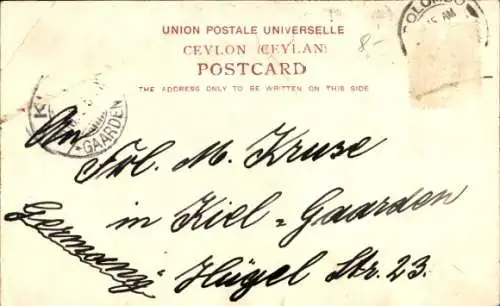 UNION POSTALE UNIVERSELLE
CEYLON (CEYLAN)
POSTCARD
THE ADDRESS ONLY TO BE WRITTEN ON THIS SIDE
8-
COLOMBO
15 AM
GAARDEN
An
Frl. M. Kruse
in Kiel-Gaarden
Hügel Str. 23.
Germany